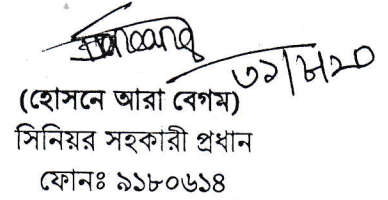 ৩১/৮/২০
(হোসনে আরা বেগম)
সিনিয়র সহকারী প্রধান
ফোনঃ ৯১৮০৬১৪